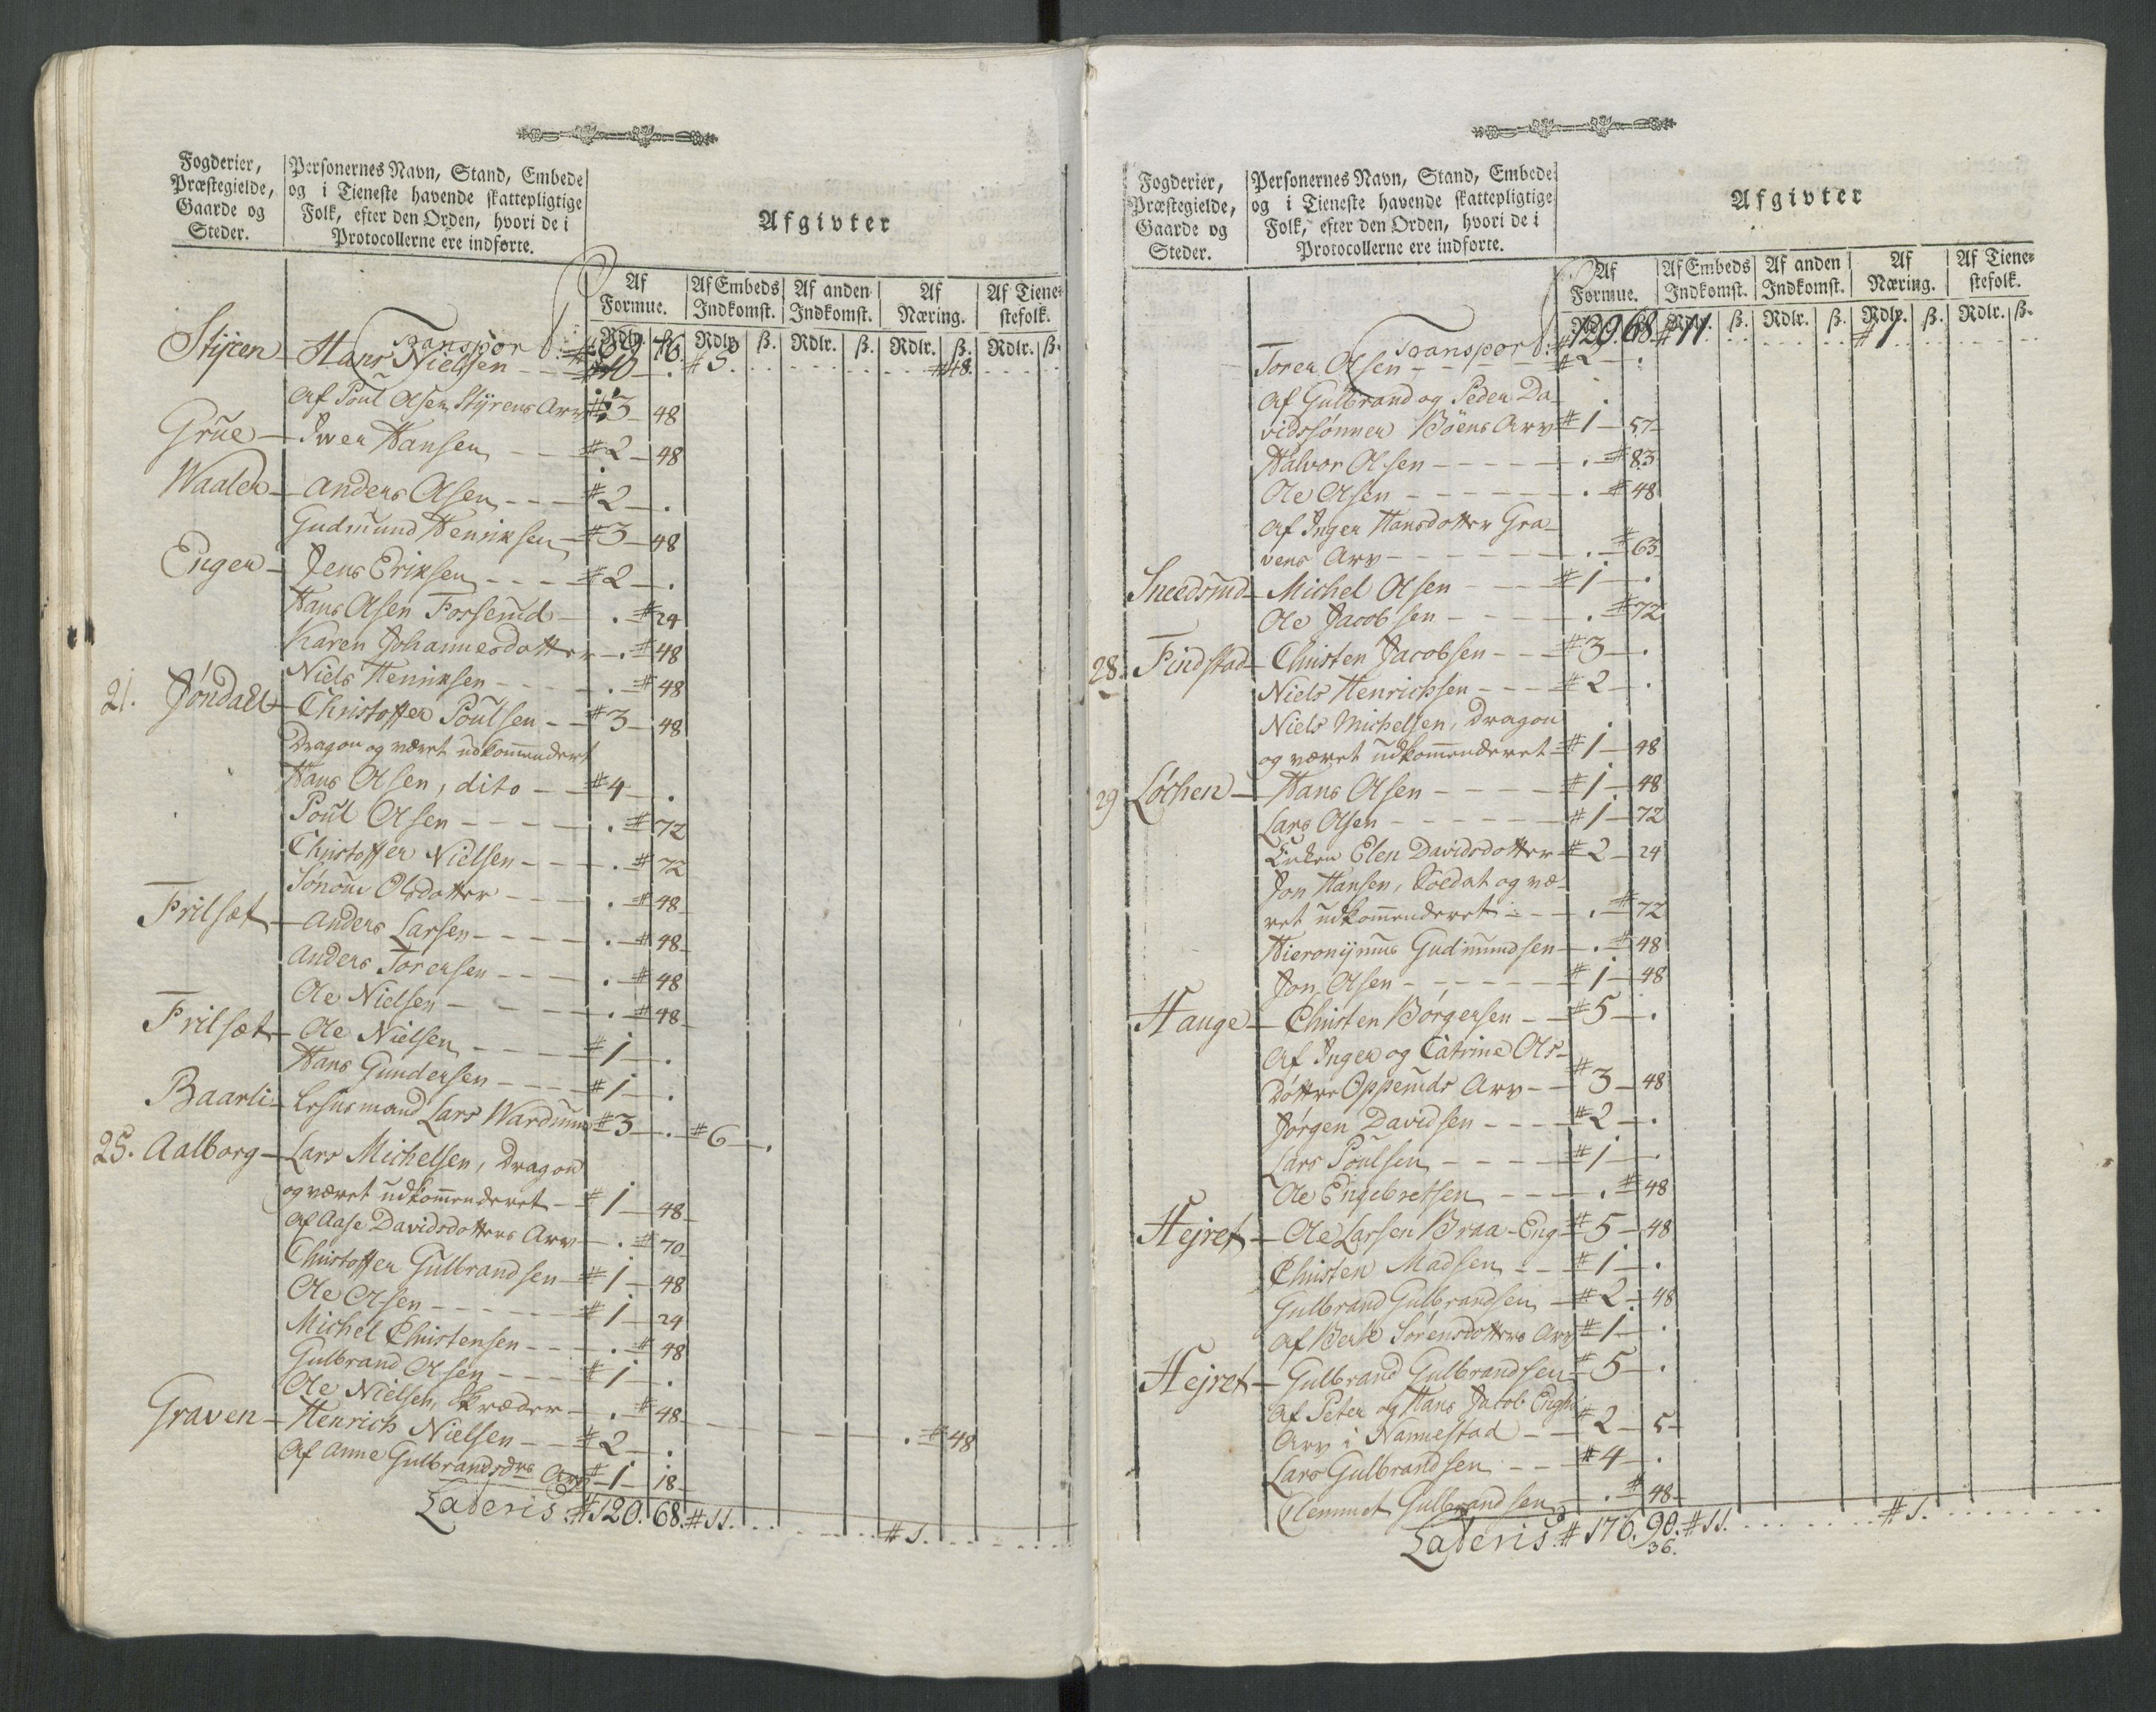 Fogderier,
Præstegielde,
Gaarde og
Steder.
Personernes Navn, Stand, Embede
og i Tieneste havende skattepligtige
Folk, efter den Orden, hvori de i
Protocollerne ere indførte.
Afgivter
Af Formue. Af Embeds Indkomst. Af anden Indkomst. Af Næring. Af Tienestefolk.
Rdlr. ß. Rdlr. ß. Rdlr. ß. Rdlr. ß. Rdlr. ß.
Transport # 69. 76. # 5. # 48.
Styren — Hans Nielsen - - # 10 — .
Af Poul Olsen Styrens Arv # 3 — 48
Grue — Iver Hansen - - # 2 — 48
Waaler — Anders Olsen - - - # 2 — .
Gudmund Henriksen # 3 — 48
Enger — Jens Eriksen - - - - # 2 — .
Hans Olsen Fosserud — . # 24
Karen Johannesdotter — . # 48
Niels Henriksen - - - - . # 48
21. Jøndahl — Christoffer Poulsen - - # 3 — 48
Dragon og været udkommendert
Hans Olsen, dito - - # 4 — .
Poul Olsen - - - - . # 72
Christoffer Nielsen - - - . # 72
Olsdotter - - - . # 48
Frilset — Anders Larsen - - - - . # 48
Anders Torersen - - - . # 48
Ole Nielsen - - - - . # 48
Frilset — Ole Nielsen - - - - # 1 — .
Hans Gundersen - - - - # 1 — .
Baarli — Lehnsmand Lars Wardum # 3 — . # 6 — .
25. Aalborg — Lars Michelsen, Dragon
og været udkommenderet - # 1 — 48
Af Aase Davidsdotters Arv — . # 70
Christoffer Gulbrandsen # 1 — 48
Ole Olsen - - - - - # 1 — 24
Michel Christensen - - - . # 48
Gulbrand Olsen - - - - # 1 — .
Ole Nielsen, Skræder — . # 48 . # 48
Graven — Henrich Nielsen - - # 2 — .
Af Anne Gulbrandsdrs Arv # 1 — 18
Lateris # 120. 68. # 11. # 1.
Fogderier,
Præstegielde,
Gaarde og
Steder.
Personernes Navn, Stand, Embede
og i Tieneste havende skattepligtige
Folk, efter den Orden, hvori de i
Protocollerne ere indførte.
Afgivter
Af Formue. Af Embeds Indkomst. Af anden Indkomst. Af Næring. Af Tienestefolk.
Rdlr. ß. Rdlr. ß. Rdlr. ß. Rdlr. ß. Rdlr. ß.
Transport # 120. 68. # 11. # 1.
Torer Olsen - - - # 2 — .
Af Gulbrand og Peder Da-
vidssønner Böens Arv # 1 — 57
Halvor Olsen - - - - - . # 83
Ole Olsen - - - - - . # 48
Af Inger Hansdotter Gra-
vens Arv - - - - - . # 63
Sneedsrud — Michel Olsen - - - # 1 — .
Ole Jacobsen - - - - . # 72
28. Findstad — Christen Jacobsen - - # 3 — .
Niels Henrichsen - - - # 2 — .
Niels Michelsen, Dragon
og været udkommenderet # 1 — 48
29 Løchen — Hans Olsen - - - - # 1 — 48
Lars Olsen - - - - - # 1 — 72
Enken Elen Davidsdotter # 2 — 24
Jon Hansen, Soldat og væ-
ret udkommenderet - - - . # 72
Hieronijmus Gudmundsen — . # 48
Jon Olsen - - - - - # 1 — 48
Hauge — Christen Børgersen - - # 5 — .
Af Inger og Catrine Ols-
døttre Opperuds Arv - - # 3 — 48
Jørgen Davidsen - - - # 2 — .
Lars Poulsen - - - - # 1 — .
Ole Engebretsen - - - . # 48
Hejret — Ole Larsen Braa-Eng # 5 — 48
Christen Madsen - - # 1 — .
Gulbrand Gulbrandsen # 2 — 48
Af Berte Sørensdotters Arv # 1 — .
Hejret — Gulbrand Gulbrandsen # 5 — .
Af Peter og Hans Jacob
Arv i Nannestad - - # 2 — 5
Lars Gulbrandsen - - # 4 — .
Clemmet Gulbrandsen . # 48
Lateris # 176. 90. # 11. # 1.
36.